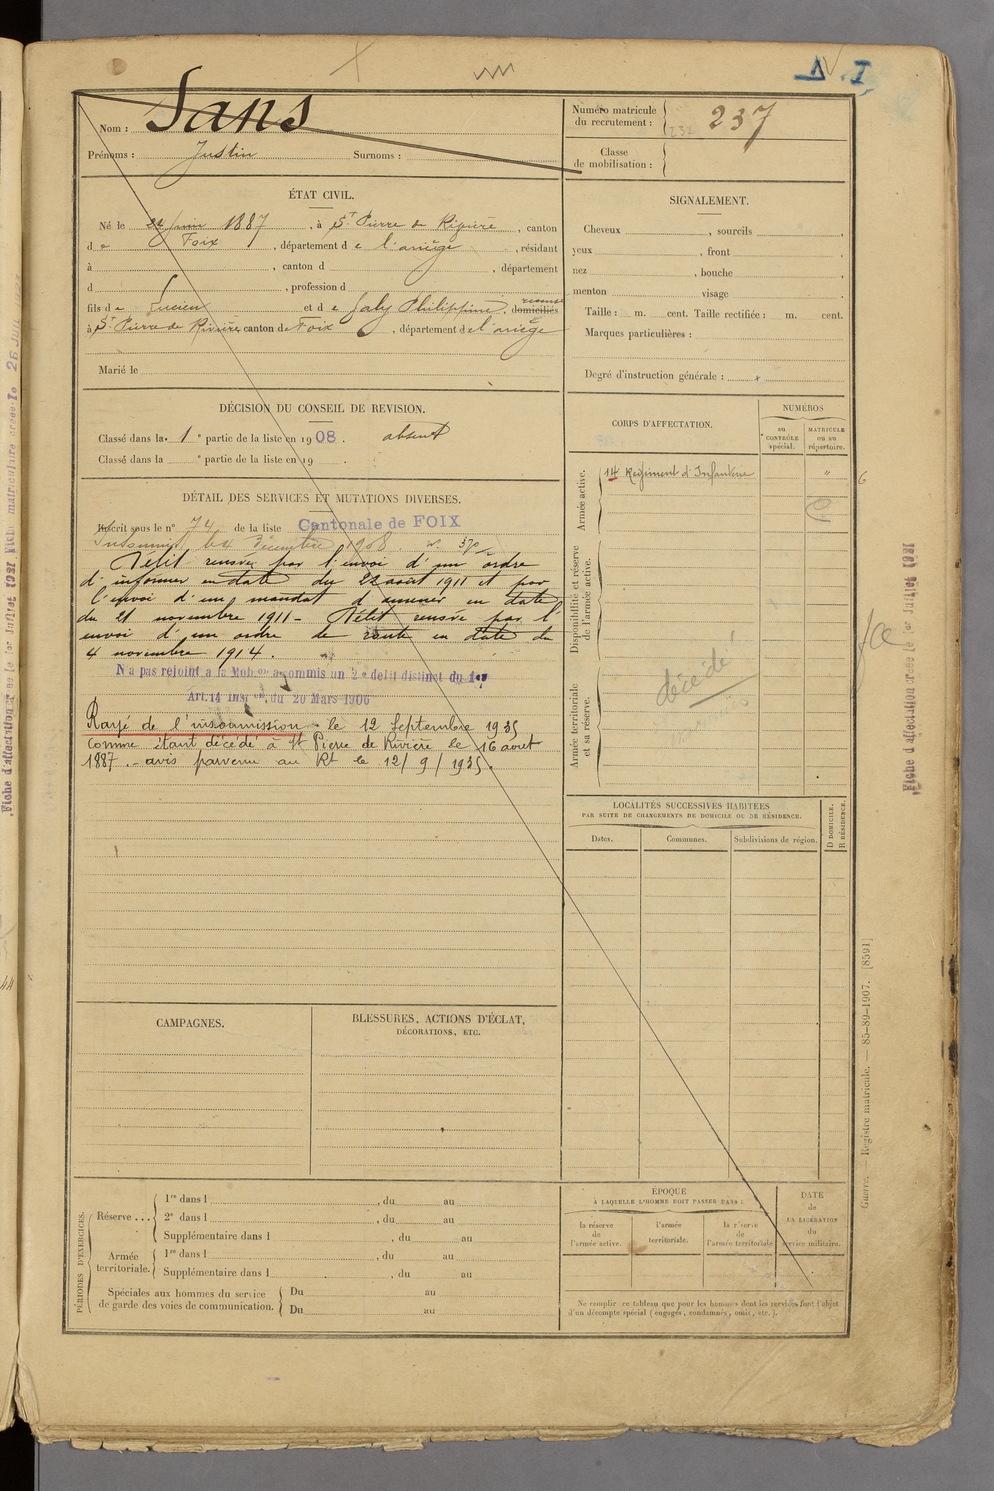 Nom : Sans
Prénoms : Justin Surnoms :
Numéro matricule
du recrutement : 237
Classe
de mobilisation :
ÉTAT CIVIL.
Né le 24 juin 1887, à St Pierre de Rivière, canton
de Foix, département de l'ariège, résidant
à , canton d , département
d , profession d
fils de Lucien et de Jaly Philippine, domiciliés
à St Pierre de Rivière canton de Foix, département de l'ariège
Marié le
SIGNALEMENT.
Cheveux , sourcils ,
yeux , front ,
nez , bouche ,
menton visage .
Taille : m. cent. Taille rectifiée : m. cent.
Marques particulières :
Degré d'instruction générale :
DÉCISION DU CONSEIL DE REVISION.
Classé dans la 1 e partie de la liste en 1908. absent
Classé dans la e partie de la liste en 19 .
DÉTAIL DES SERVICES ET MUTATIONS DIVERSES.
Inscrit sous le n° 74 de la liste Cantonale de FOIX
Insoumis, le 4 Décembre 1908. n. 370
Délit rensré par l'envoi d'un ordre
d'informer en date du 22 aout 1911 et par
l'envoi d'un mandat d'amener en date
du 21 novembre 1911 - Délit rensré par l'
envoi d'un ordre de route en date du
4 novembre 1914.
N'a pas rejoint à la Mob.on a commis un 2e délit distinct du 1er
Art. 14 Inst on du 20 Mars 1906
Rayé de l'insoumission le 12 Septembre 1935
comme étant décédé à St Pierre de Rivière le 16 aout
1887. - avis parvenu au Rt le 12/9/1935.
CORPS D'AFFECTATION.
NUMÉROS
au
CONTRÔLE
spécial.
MATRICULE
ou au
répertoire.
Armée active.
14 Régiment d'Infanterie "
6
Disponibilité et réserve
de l'armée active.
Armée territoriale
et sa réserve.
décédé !
LOCALITÉS SUCCESSIVES HABITÉES
PAR SUITE DE CHANGEMENTS DE DOMICILE OU DE RÉSIDENCE.
Dates.
Communes.
Subdivisions de région.
D DOMICILE.
R RÉSIDENCE.
CAMPAGNES.
BLESSURES, ACTIONS D'ÉCLAT,
DÉCORATIONS, ETC.
PÉRIODES D'EXERCICES.
Réserve...
1re dans l , du au
2e dans l , du au
Supplémentaire dans l , du au
Armée
territoriale.
1re dans l , du au
Supplémentaire dans l , du au
Spéciales aux hommes du service
de garde des voies de communication.
Du au
Du au
ÉPOQUE
À LAQUELLE L'HOMME DOIT PASSER DANS :
la réserve
de
l'armée active.
l'armée
territoriale.
la réserve
de
l'armée territoriale
DATE
de
LA LIBÉRATION
du
service militaire.
Ne remplir ce tableau que pour les hommes dont les services font l'objet
d'un décompte spécial (engagés, condamnés, omis, etc.).
Guerre. — Registre matricule. — 85-89-1907. [8591]
Fiche d'affectation créée le 1er Juillet 1921